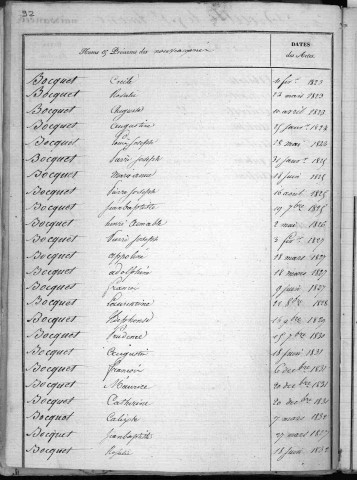 92
Noms & Prénoms des nouveaux nés
DATES
des Actes.
Bocquet Cécile 11 fév. 1823
Bocquet Rosalie 12 mars 1823
Bocquet Auguste 10 avril 1823
Bocquet Augustine 25 janv. 1824
Bocquet Louis Joseph 18 mai 1824
Bocquet Joseph 31 janv. 1825
Bocquet Marianne 18 juin 1825
Bocquet Pierre Joseph 16 août 1825
Bocquet Jean baptiste 19 7bre 1825
Bocquet henri Aimable 2 mai 1826
Bocquet Pierre Joseph 3 fév. 1827
Bocquet appoline 18 mars 1827
Bocquet adolphine 18 mars 1827
Bocquet françois 9 juin 1827
Bocquet Laurentine 20 8bre 1828
Bocquet Ildephonse 16 9bre 1830
Bocquet Prudence 15 7bre 1831
Bocquet Augustin 18 juin 1831
Bocquet françois 6 dec bre 1831
Bocquet Maurice 20 dec bre 1831
Bocquet Catherine 20 dec bre 1831
Bocquet Calixte 7 mars 1832
Bocquet jean baptiste 27 mars 1832
Bocquet 18 juin 1832